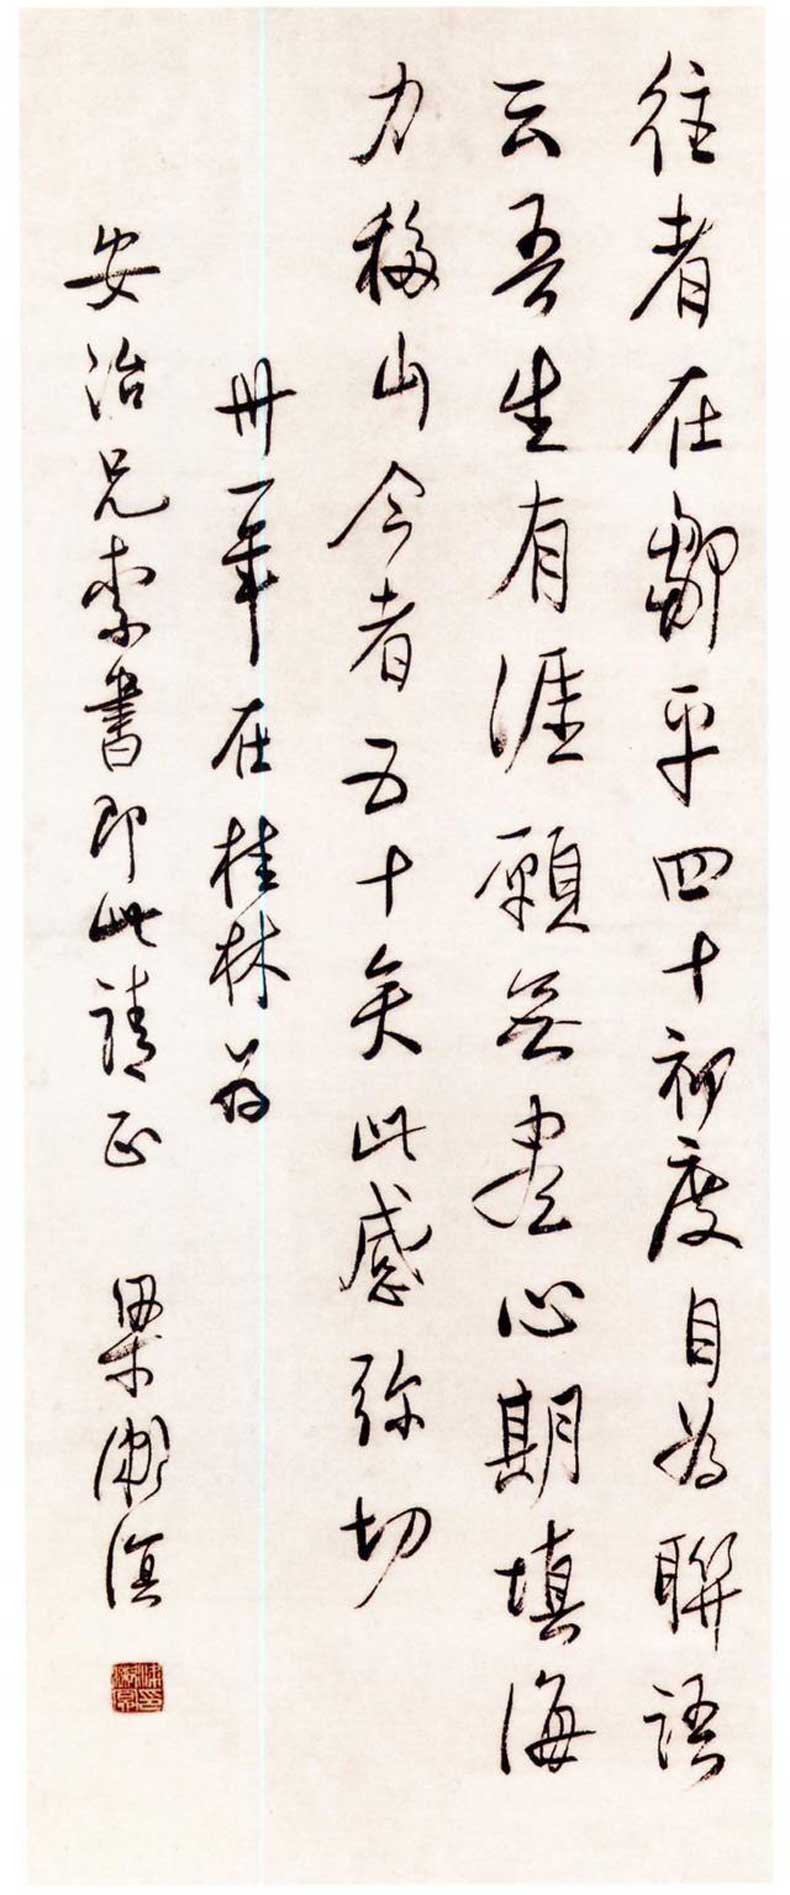 往者在鄒平四十初度自為聯語
云吾生有涯願無盡心期填海
力移山今者五十矣此感弥切
卅一年在桂林為
安治兄索書即此請正 梁漱溟